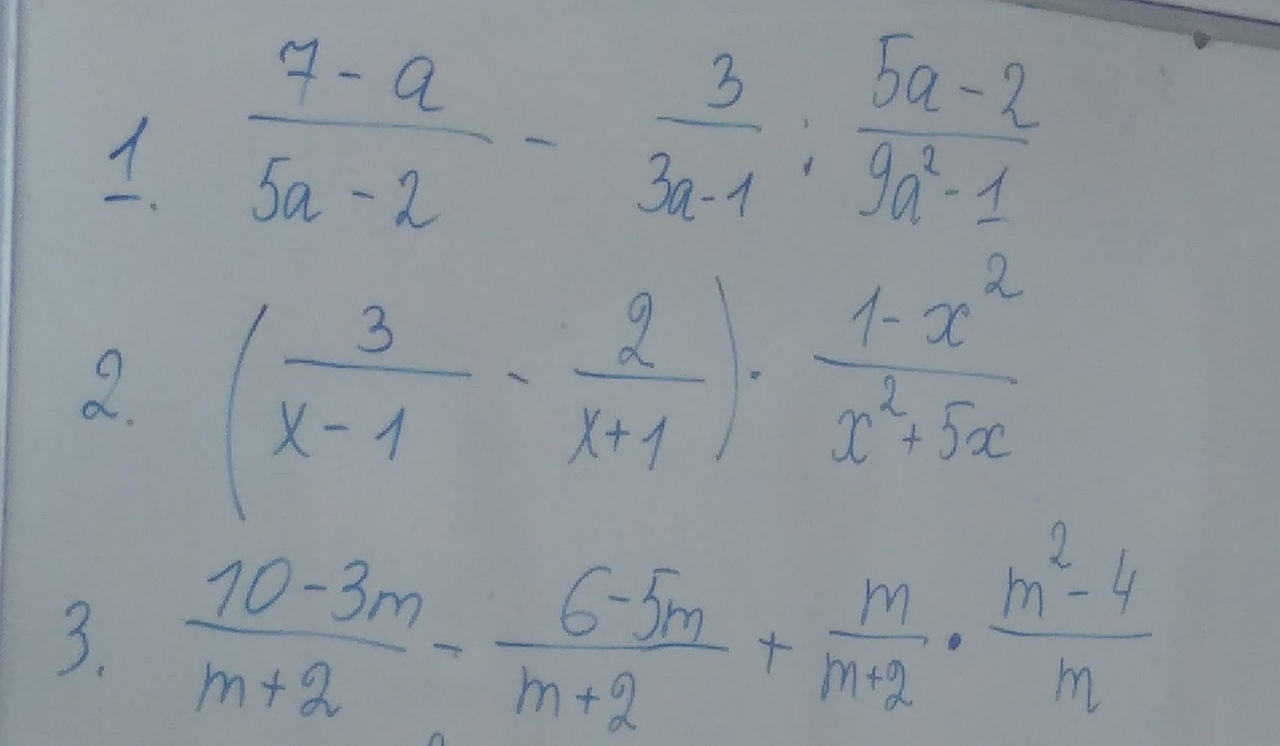 1. \frac{7-a}{5a-2} - \frac{3}{3a-1} : \frac{5a-2}{9a^2-1}
2. \left( \frac{3}{x-1} - \frac{2}{x+1} \right) \cdot \frac{1-x^2}{x^2+5x}
3. \frac{10-3m}{m+2} - \frac{6-5m}{m+2} + \frac{m}{m+2} \cdot \frac{m^2-4}{m}